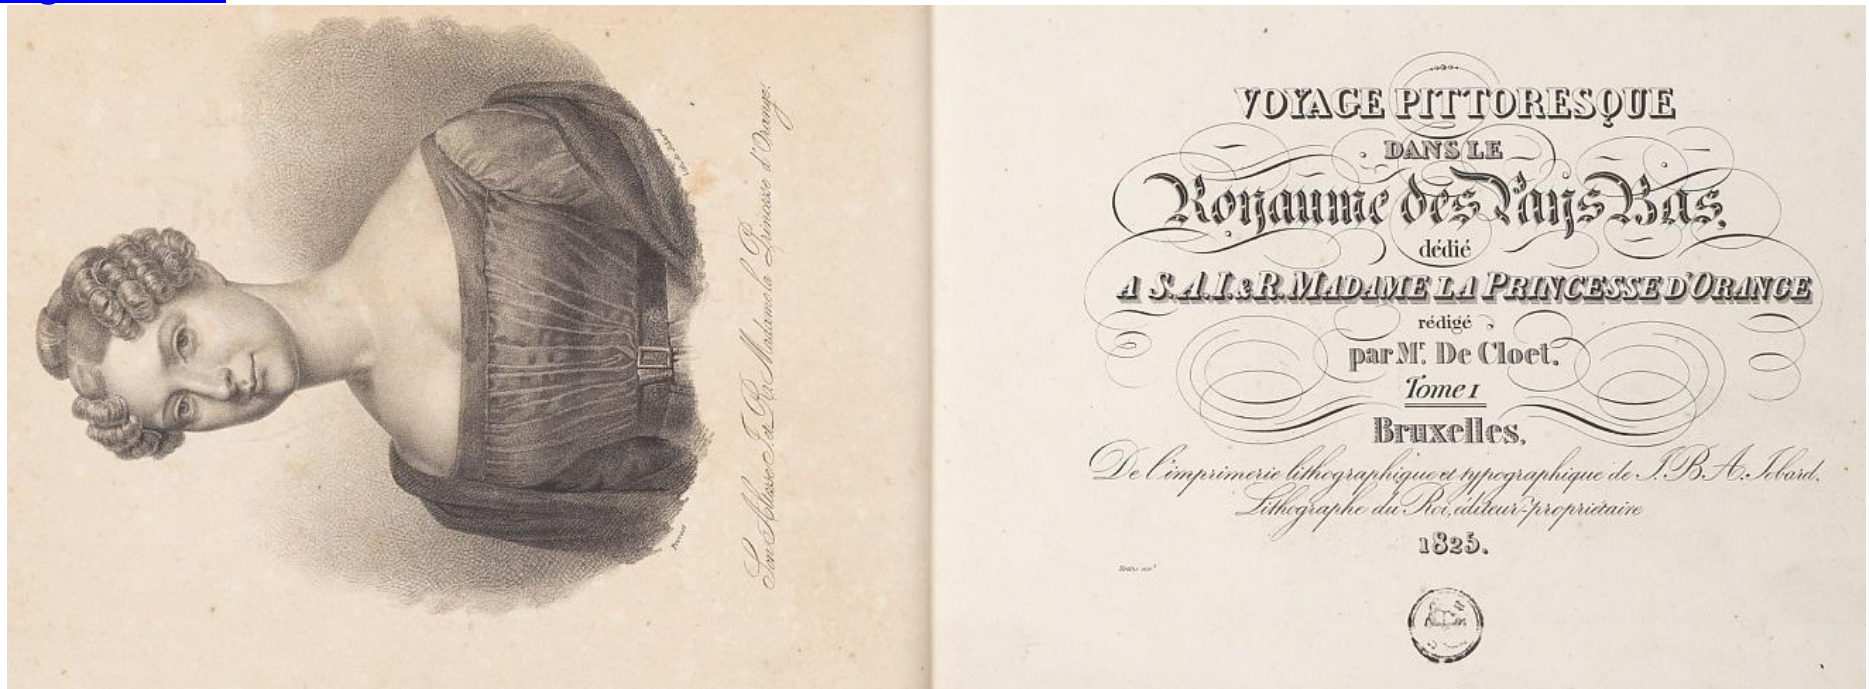 Son Altesse I. & R. Madame la Princesse d'Orange.
VOYAGE PITTORESQUE
DANS LE
Royaume des Pays Bas,
dédié
A S.A.I. & R. MADAME LA PRINCESSE D'ORANGE
rédigé
par Mr. De Cloet.
Tome I
Bruxelles,
De l'imprimerie lithographique et typographique de J. B. A. Jobard.
Lithographe du Roi, éditeur-propriétaire
1825.